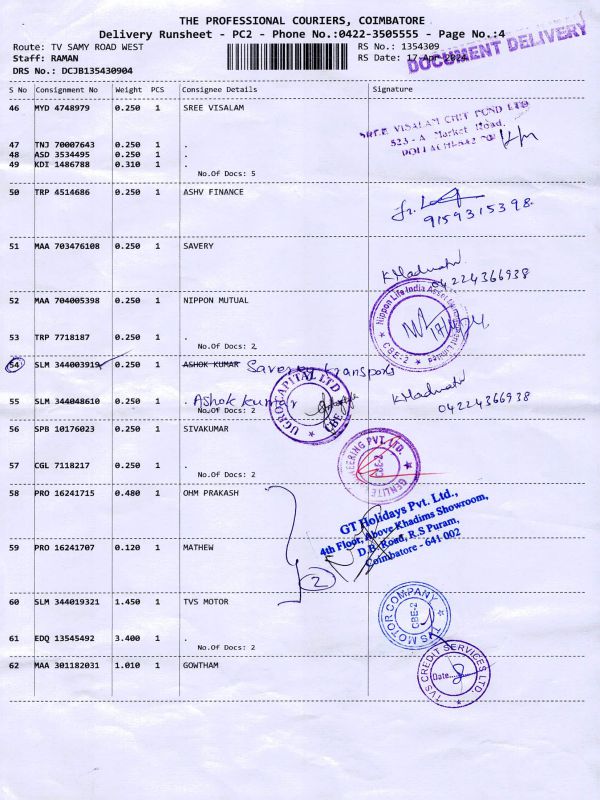 THE PROFESSIONAL COURIERS, COIMBATORE
Delivery Runsheet - PC2 - Phone No.:0422-3505555 - Page No.:4
DOCUMENT DELIVERY
Route: TV SAMY ROAD WEST RS No.: 1354309
Staff: RAMAN RS Date: 17-Apr-2024
DRS No.: DCJB135430904
S No Consignment No Weight PCS Consignee Details Signature
46 MYD 4748979 0.250 1 SREE VISALAM
SREE VISALAM CHIT FUND LTD
523-A Market Road,
47 TNJ 70007643 0.250 1 .
48 ASD 3534495 0.250 1 .
49 KDI 1486788 0.310 1 .
No.Of Docs: 5
50 TRP 4514686 0.250 1 ASHV FINANCE
9159315398.
51 MAA 703476108 0.250 1 SAVERY
04224366938
52 MAA 704005398 0.250 1 NIPPON MUTUAL
Nippon Life India Asset Management Limited
CBE-2
53 TRP 7718187 0.250 1 .
No.Of Docs: 2
54 SLM 344003919 0.250 1 ASHOK KUMAR Savery transports
UGRO CAPITAL LTD
CBE
55 SLM 344048610 0.250 1 . Ashok kumar
04224366938
No.Of Docs: 2
56 SPB 10176023 0.250 1 SIVAKUMAR
57 CGL 7118217 0.250 1 .
CBE-2
No.Of Docs: 2
58 PRO 16241715 0.480 1 OHM PRAKASH
GT Holidays Pvt. Ltd.,
4th Floor, Above Khadims Showroom,
D.B. Road, R.S Puram,
Coimbatore - 641 002
59 PRO 16241707 0.120 1 MATHEW
2
60 SLM 344019321 1.450 1 TVS MOTOR
TVS MOTOR COMPANY
CBE-2
61 EDQ 13545492 3.400 1 .
No.Of Docs: 2
62 MAA 301182031 1.010 1 GOWTHAM
TVS CREDIT SERVICES LTD.
Date